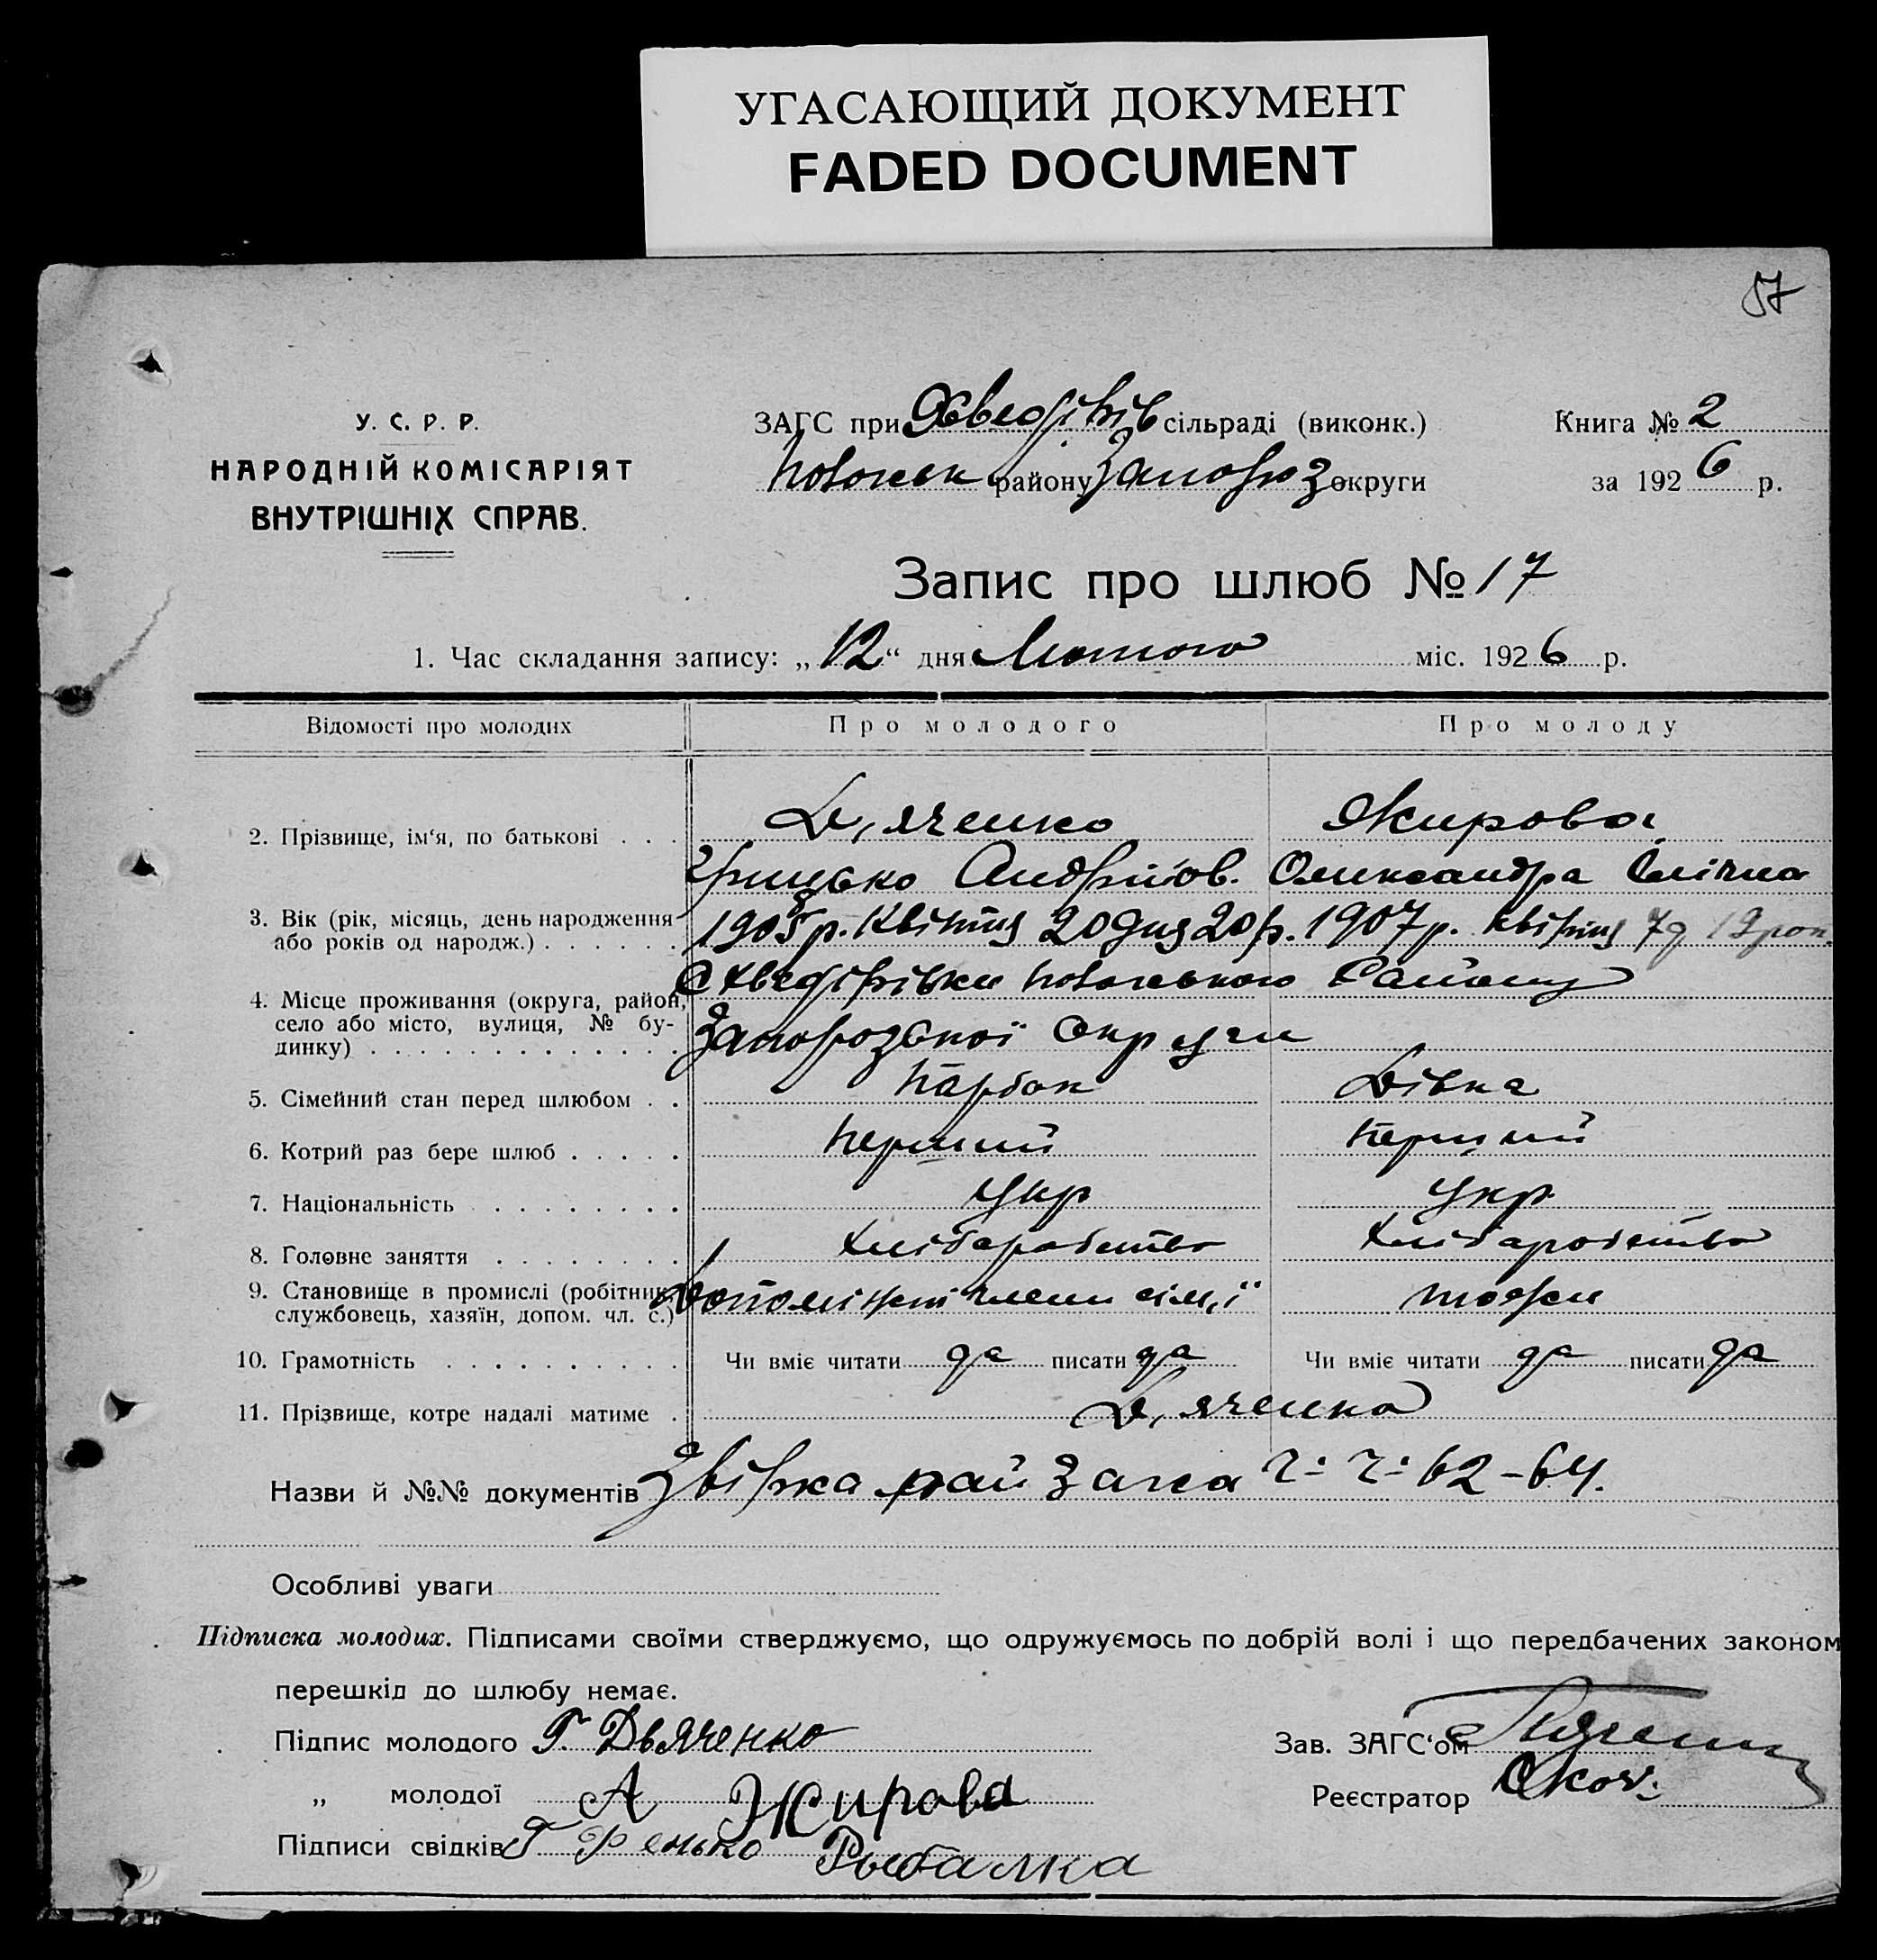 УГАСАЮЩИЙ ДОКУМЕНТ
FADED DOCUMENT
57
У. С. Р. Р.
НАРОДНІЙ КОМІСАРІЯТ
ВНУТРІШНІХ СПРАВ.
ЗАГС при Хведірів сільраді (виконк.)
району Запоріз округи
Книга № 2
за 1926 р.
Запис про шлюб № 17
1. Час складання запису: „12“ дня Лютого міс. 1926 р.
Відомості про молодих Про молодого Про молоду
2. Прізвище, ім‘я, по батькові . . . Д,яченко Жирова
Грицько Андрійов. Олександра
3. Вік (рік, місяць, день народження
або років од народж.) . . . . . . 1905 р. Квітня 20 дня 20 р. 1907 р. Квітня 7 д 19 рок.
4. Місце проживання (округа, район, село або місто, вулиця, № бу-
динку) . . . . . . . . . . . . . Хведірівки Району
Запорозької Округи
5. Сімейний стан перед шлюбом . . Парубок Дівка
6. Котрий раз бере шлюб . . . . . Перший Перший
7. Національність . . . . . . . . Укр Укр
8. Головне заняття . . . . . . . . Хліборобство Хліборобство
9. Становище в промислі (робітник,
службовець, хазяїн, допом. чл. с.) Допоміжні члени сім,ї тоже
10. Грамотність . . . . . . . . . . Чи вміє читати да писати да Чи вміє читати да писати да
11. Прізвище, котре надалі матиме . Д,яченко
Назви й №№ документів Звірка рай Загса ч: ч: 62–64.
Особливі уваги
Підписка молодих. Підписами своїми стверджуємо, що одружуємось по добрій волі і що передбачених законом
перешкід до шлюбу немає.
Підпис молодого Г. Дьяченко Зав. ЗАГС‘ом
„ молодої А Жирова Реєстратор
Підписи свідків Рыбалка